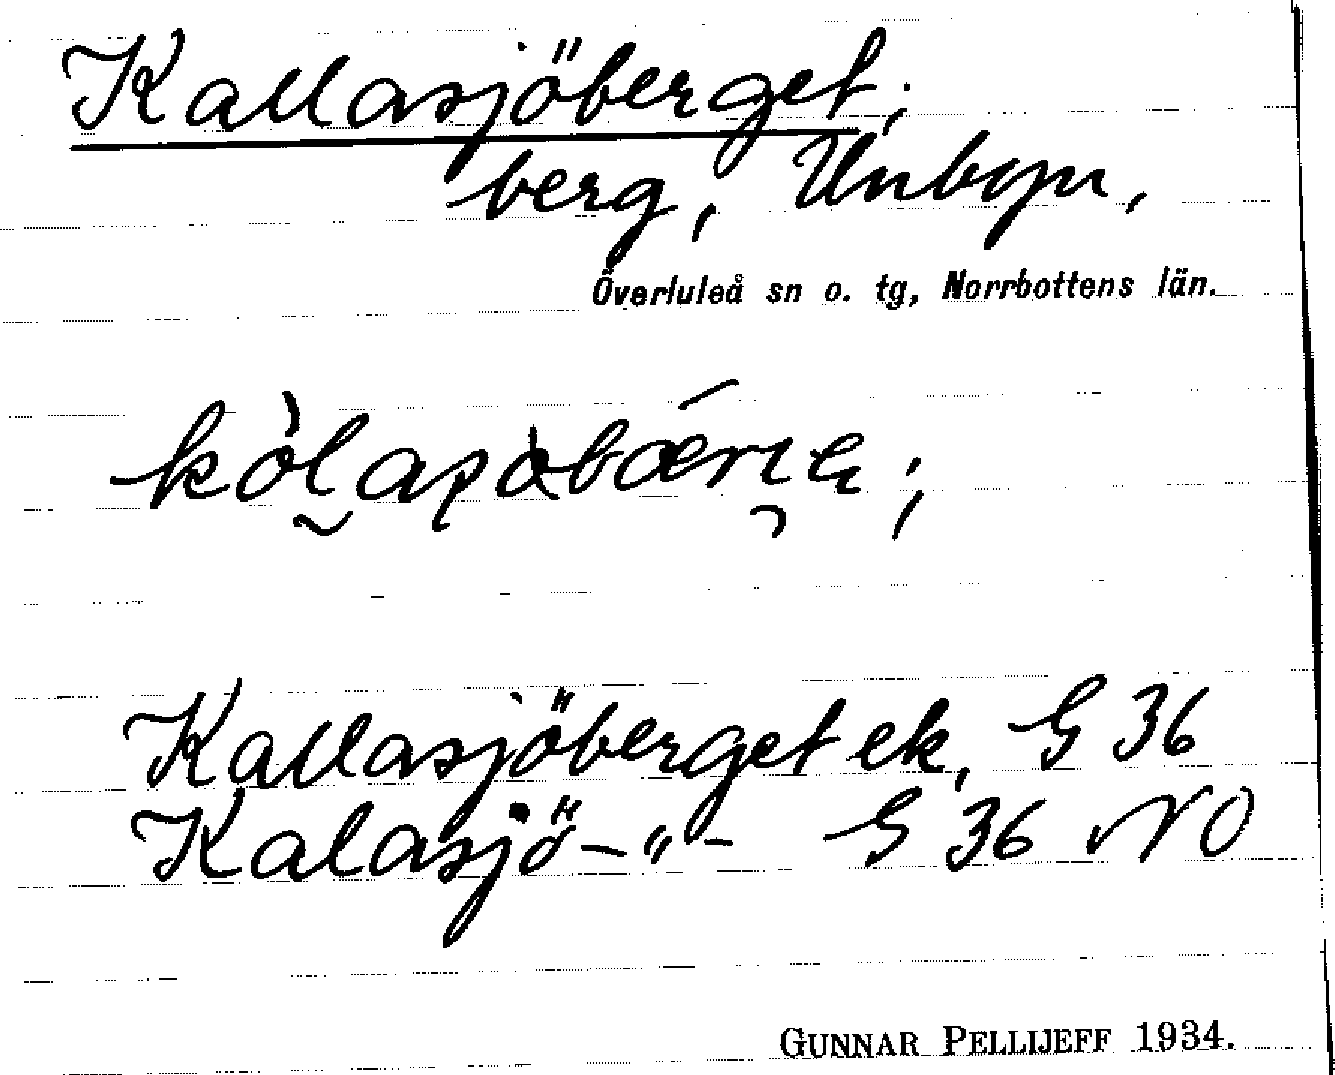 Kallasjöberget;
berg, Unbyn,
Överluleå sn o. tg, Norrbottens län.
Kallasjöberget ek, G 36
Kalasjö-"- G 36 NO
GUNNAR PELLIJEFF 1934.